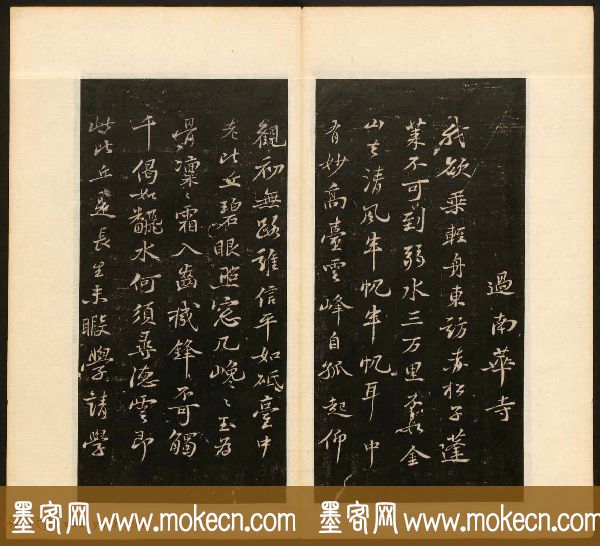 過南華寺
我欲乘輕舟東訪赤松子蓬
萊不可到弱水三万里金
山去清風半帆半帆耳中
有妙高臺雲峰自孤起仰
觀初無路誰信平如砥臺中
老比丘碧眼照窓几巉〻玉為
骨凜〻霜入齒機鋒不可觸
千偈如飜水何須尋德雲即
此比丘是長生未暇學請學
墨客网 www.mokecn.com 墨客网 www.mokecn.com